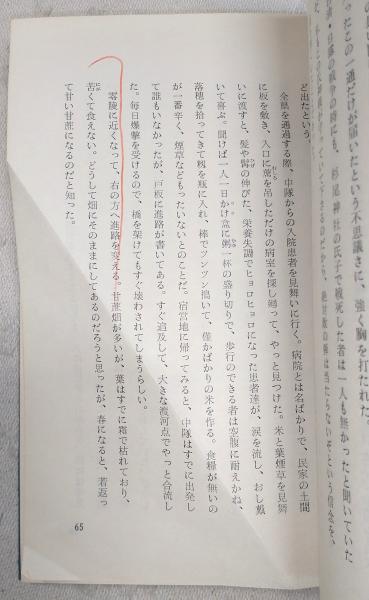 ったこの一通だけが届いたという不思議さに、強く胸を打たれた。
ど出たという。
全県を通過する際、中隊からの入院患者を見舞いに行く。病院とは名ばかりで、民家の土間
に板を敷き、入口に蓆を吊しただけの病室を探し廻って、やっと見つけた。米と葉煙草を見舞
いに渡すと、髪や髯の伸びた、栄養失調でヒョロヒョロになった患者達が、涙を流し、おし戴
いて喜ぶ。聞けば一人一日かけ盒に粥一杯の盛り切りで、歩行のできる者は空腹に耐えかね、
落穂を拾ってきて籾を瓶に入れ、棒でツンツン搗いて、僅かばかりの米を作る。食糧が無いの
が一番辛く、煙草などもったいないとのことだ。宿営地に帰ってみると、中隊はすでに出発し
て誰もいなかったが、戸板に進路が書いてある。すぐ追及して、大きな渡河点でやっと合流し
た。毎日爆撃を受けるので、橋を架けてもすぐ壊わされてしまうらしい。
零陵に近くなって、右の方へ進路を変える。甘蔗畑が多いが、葉はすでに霜で枯れており、
苦くて食えない。どうして畑にそのままにしてあるのだろうと思ったが、春になると、若返っ
て甘い甘蔗になるのだと知った。
65